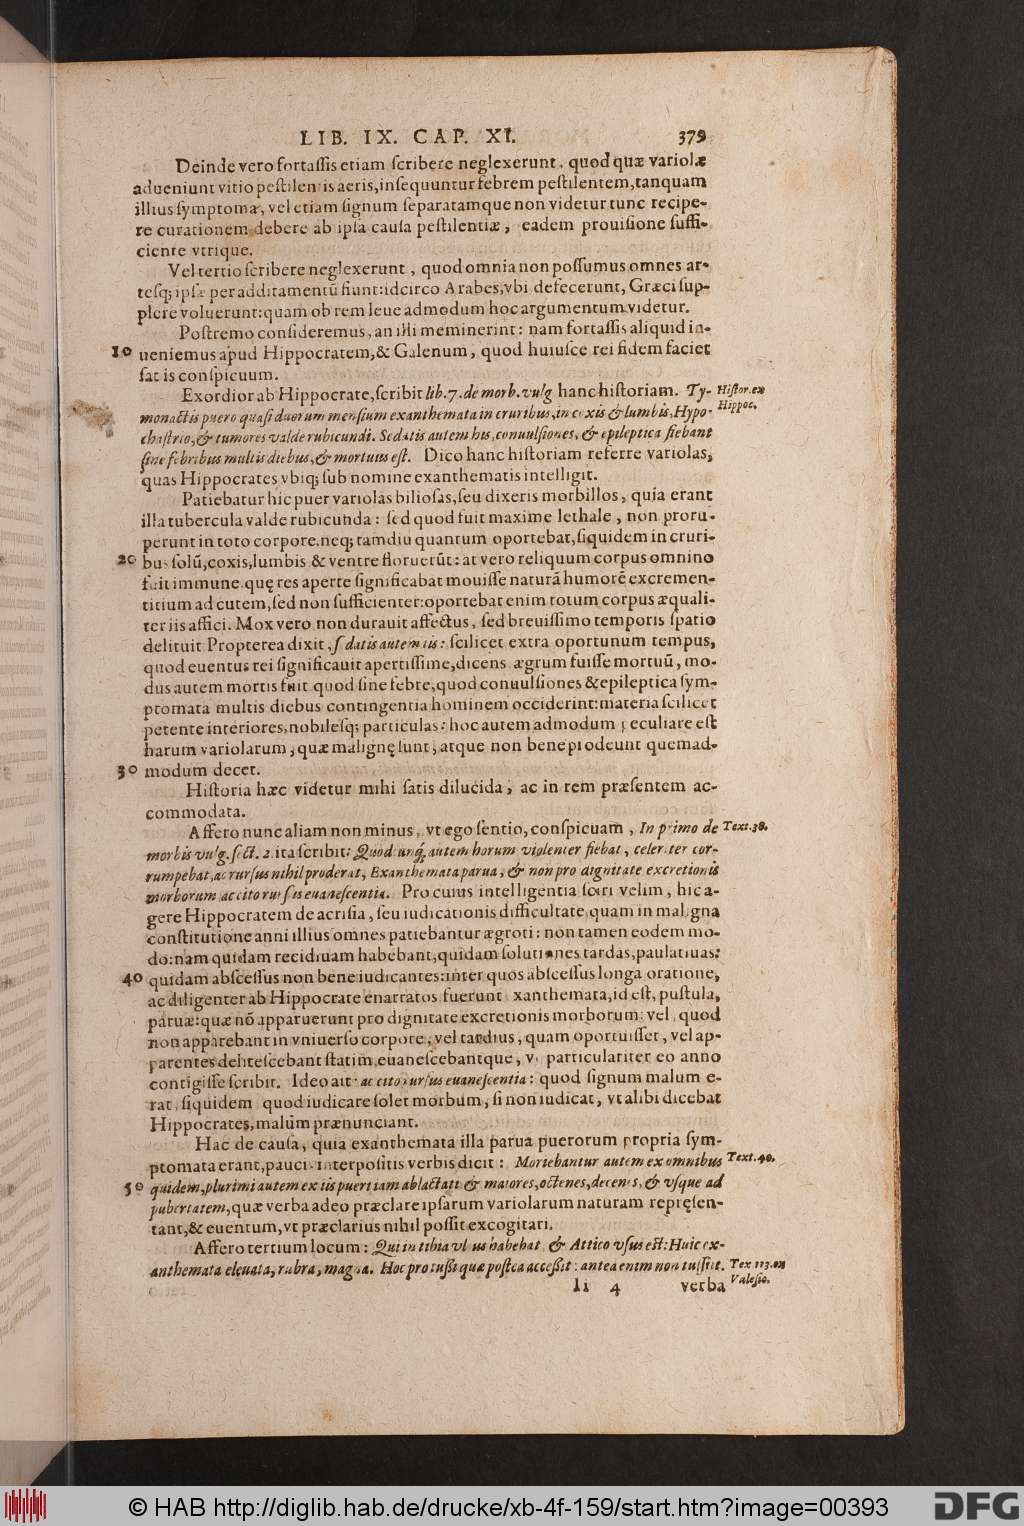 LIB. IX. CAP. XI. 379
Deinde vero fortassis etiam scribere neglexerunt, quod quæ variolæ
adueniunt vitio pestilentis aeris, insequuntur febrem pestilentem, tanquam
illius symptoma, vel etiam signum separatamque non videtur tunc recipe-
re curationem debere ab ipsa causa pestilentiæ, eadem prouisione suffi-
ciente vtrique.
Vel tertio scribere neglexerunt, quod omnia non possumus omnes ar-
tesq; ipsæ per additamentũ fiunt: idcirco Arabes, vbi defecerunt, Græci sup-
plere voluerunt: quam ob rem leue admodum hoc argumentum videtur.
Postremo consideremus, an illi meminerint: nam fortassis aliquid in-
10 ueniemus apud Hippocratem, & Galenum, quod huiusce rei fidem faciet
satis conspicuum.
Exordior ab Hippocrate, scribit lib. 7. de morb. vulg hanc historiam. Ty- Histor. ex
monactis puero quasi duorum mensium exanthemata in cruribus, in coxis & lumbis, Hypo- Hippoc.
chastrio, & tumores valde rubicundi. Sedatis autem his, conuulsiones, & epileptica fiebant
sine febribus multis diebus, & mortuus est. Dico hanc historiam referre variolas,
quas Hippocrates vbiq; sub nomine exanthematis intelligit.
Patiebatur hic puer variolas biliosas, seu dixeris morbillos, quia erant
illa tubercula valde rubicunda: sed quod fuit maxime lethale, non proru-
perunt in toto corpore, neq; tamdiu quantum oportebat, siquidem in cruri-
20 bus solũ, coxis, lumbis & ventre floruerũt: at vero reliquum corpus omnino
fuit immune. quę res aperte significabat mouisse naturã humorẽ excremen-
titium ad cutem, sed non sufficienter: oportebat enim totum corpus æquali-
ter iis affici. Mox vero non durauit affectus, sed breuissimo temporis spatio
delituit Propterea dixit, sedatis autem iis: scilicet extra oportunum tempus,
quod euentus rei significauit apertissime, dicens ægrum fuisse mortuũ, mo-
dus autem mortis fuit quod sine febre, quod conuulsiones & epileptica sym-
ptomata multis diebus contingentia hominem occiderint: materia scilicet
petente interiores, nobilesq; particulas: hoc autem admodum peculiare est
harum variolarum, quæ malignę sunt, atque non bene prodeunt quemad-
30 modum decet.
Historia hæc videtur mihi satis dilucida, ac in rem præsentem ac-
commodata.
Affero nunc aliam non minus, vt ego sentio, conspicuam, In primo de Text. 38.
morbis vulg. sect. 2. ita scribit: Quod unq́; autem horum violenter fiebat, celeriter cor-
rumpebat, ac rursus nihil proderat, Exanthemata parua, & non pro dignitate excretionis
morborum, ac cito rursus euanescentia. Pro cuius intelligentia sciri velim, hic a-
gere Hippocratem de acrisia, seu iudicationis difficultate, quam in maligna
constitutione anni illius omnes patiebantur ægroti: non tamen eodem mo-
do: nam quidam recidiuam habebant, quidam solutiones tardas, paulatiuas:
40 quidam abscessus non bene iudicantes: inter quos abscessus longa oratione,
ac diligenter ab Hippocrate enarratos fuerunt exanthemata, id est, pustula,
paruæ: quæ nõ apparuerunt pro dignitate excretionis morborum: vel, quod
non apparebant in vniuerso corpore, vel tardius, quam oportuisset, vel ap-
parentes delitescebant statim, euanescebantque, vt particulariter eo anno
contigisse scribit. Ideo ait: ac cito rursus euanescentia: quod signum malum e-
rat, siquidem quod iudicare solet morbum, si non iudicat, vt alibi dicebat
Hippocrates, malùm prænunciant.
Hac de causa, quia exanthemata illa parua puerorum propria sym-
ptomata erant, paucis interpositis verbis dicit: Moriebantur autem ex omnibus Text. 40.
50 quidem, plurimi autem ex iis pueri iam ablactati & maiores, octenes, decenes, & vsque ad
pubertatem, quæ verba adeo præclare ipsarum variolarum naturam repręsen-
tant, & euentum, vt præclarius nihil possit excogitari.
Affero tertium locum: Qui in tibia vlcus habebat, & Attico vsus est: Huic ex-
anthemata eleuata, rubra, magna. Hoc pro tussi quæ postea accessit: antea enim non tussiit. Tex. 113. ex
Ii 4 verba Valesio.
© HAB http://diglib.hab.de/drucke/xb-4f-159/start.htm?image=00393 DFG